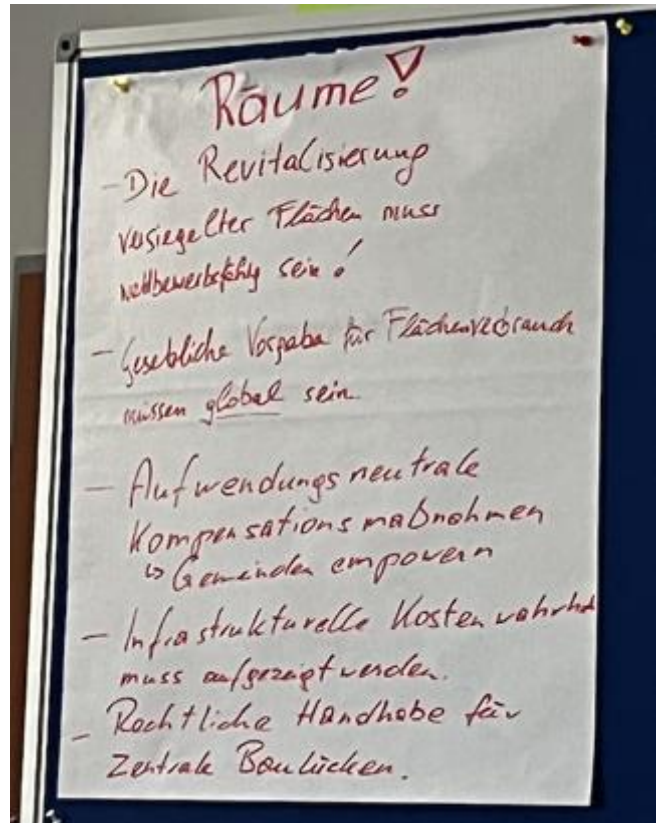 Räume!
- Die Revitalisierung
versiegelter Flächen muss
wettbewerbsfähig sein!
- Gesetzliche Vorgabe für Flächenverbrauch
müssen global sein.
- Aufwendungsneutrale
Kompensationsmaßnahmen
↳ Gemeinden empowern
- Infrastrukturelle Kostenwahrheit
muss aufgezeigt werden.
- Rechtliche Handhabe für
Zentrale Baulücken.